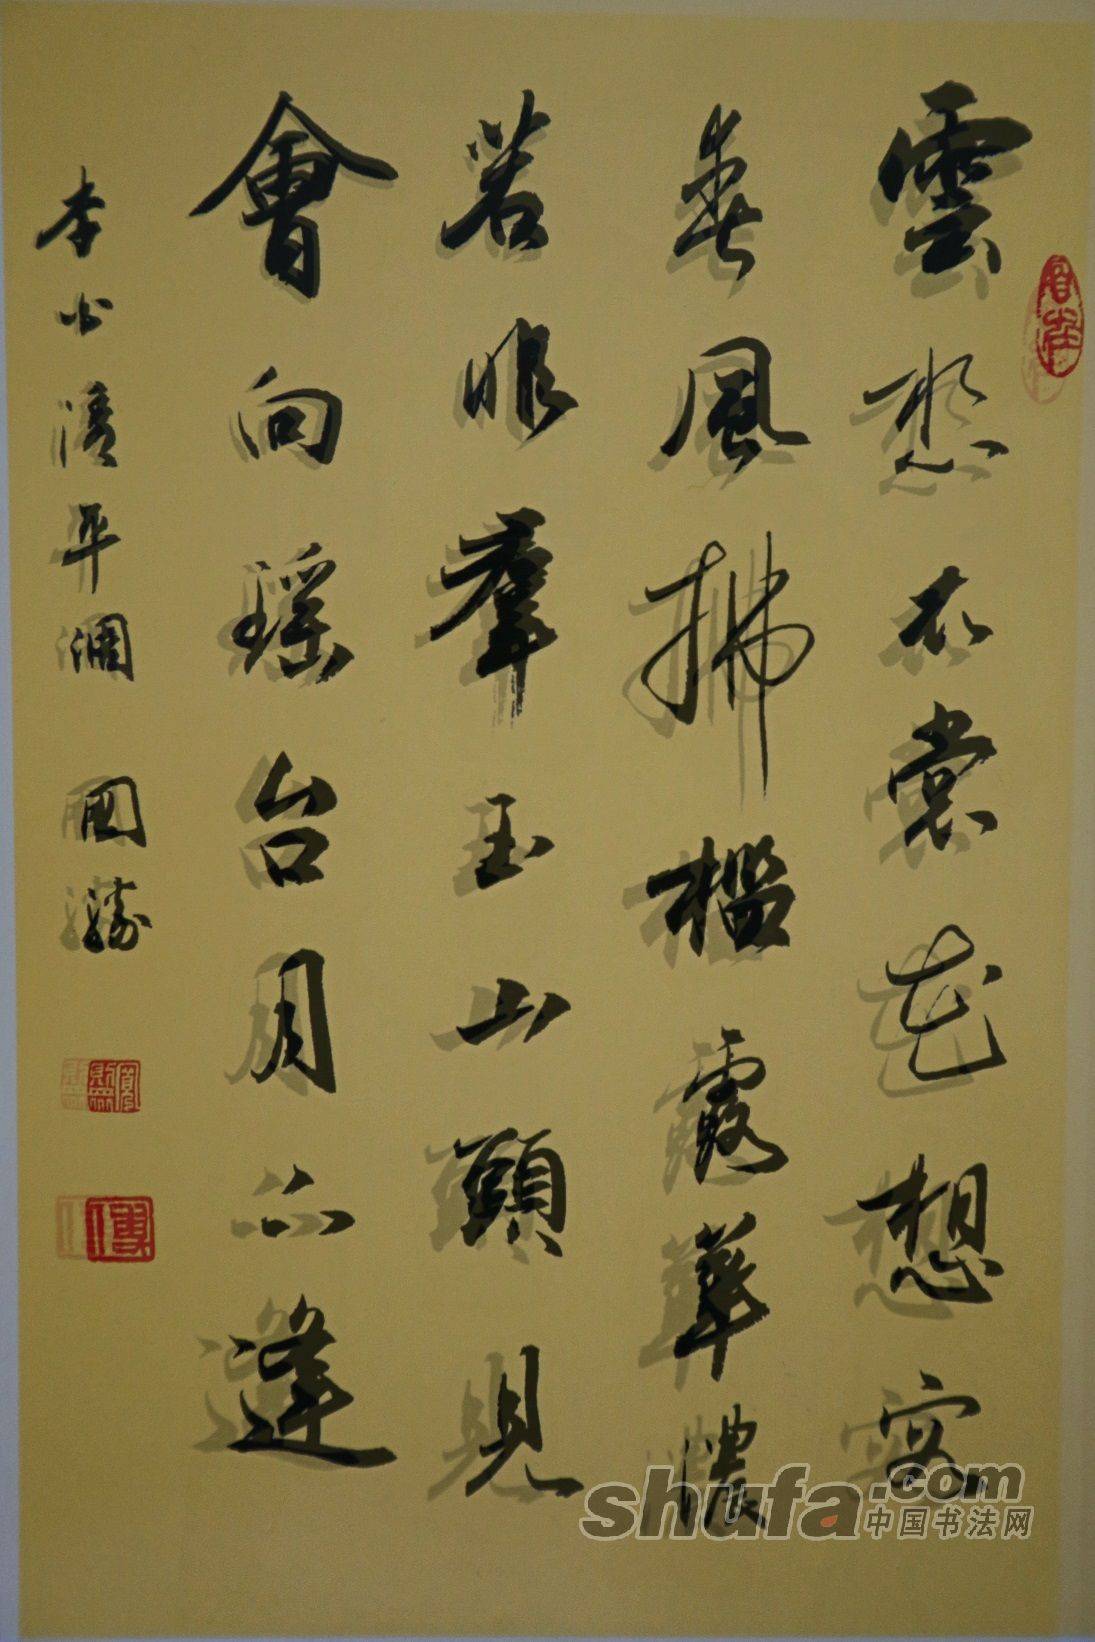 雲想衣裳花想容
春風拂檻露華濃
若非羣玉山頭見
會向瑤台月下逢
李白清平調 國勝
shufa.com
中国书法网